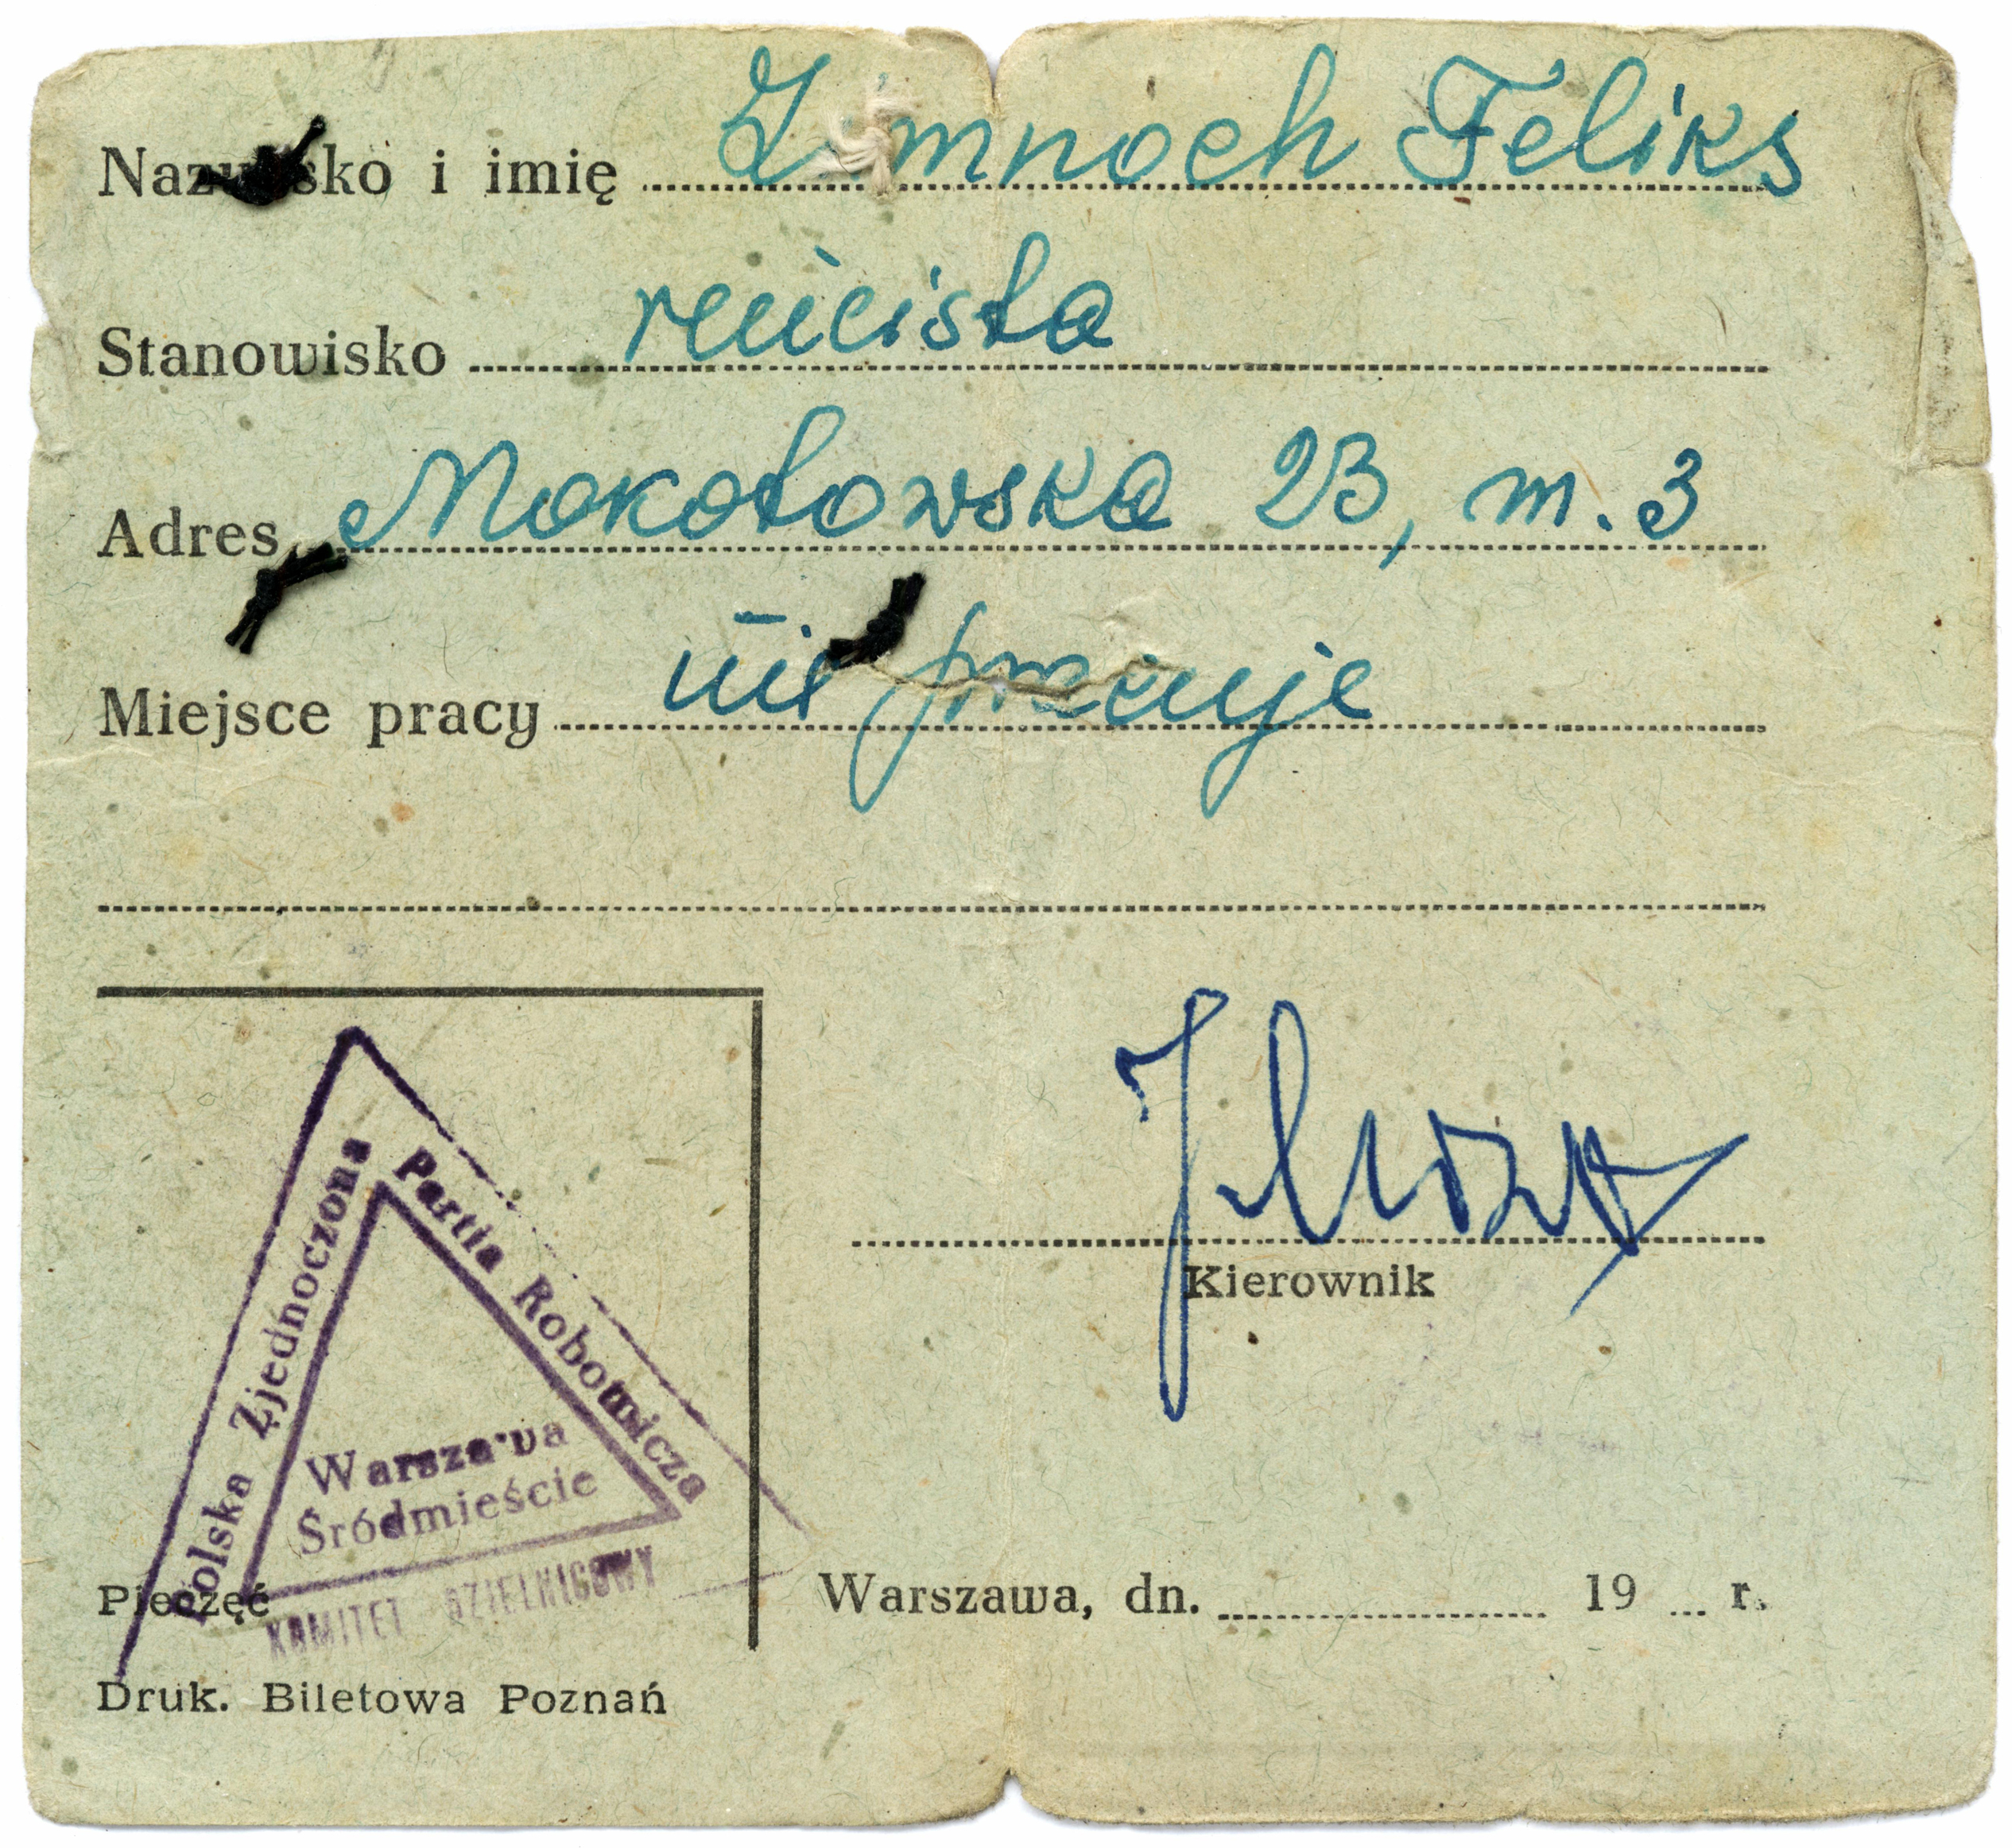 Nazwisko i imię Zimnoch Feliks
Stanowisko rencista
Adres Mokotowska 23, m. 3
Miejsce pracy nie pracuje
Polska Zjednoczona Partia Robotnicza
Warszawa
Śródmieście
KOMITET DZIELNICOWY
Kierownik
Pieczęć
Warszawa, dn. 19 r.
Druk. Biletowa Poznań